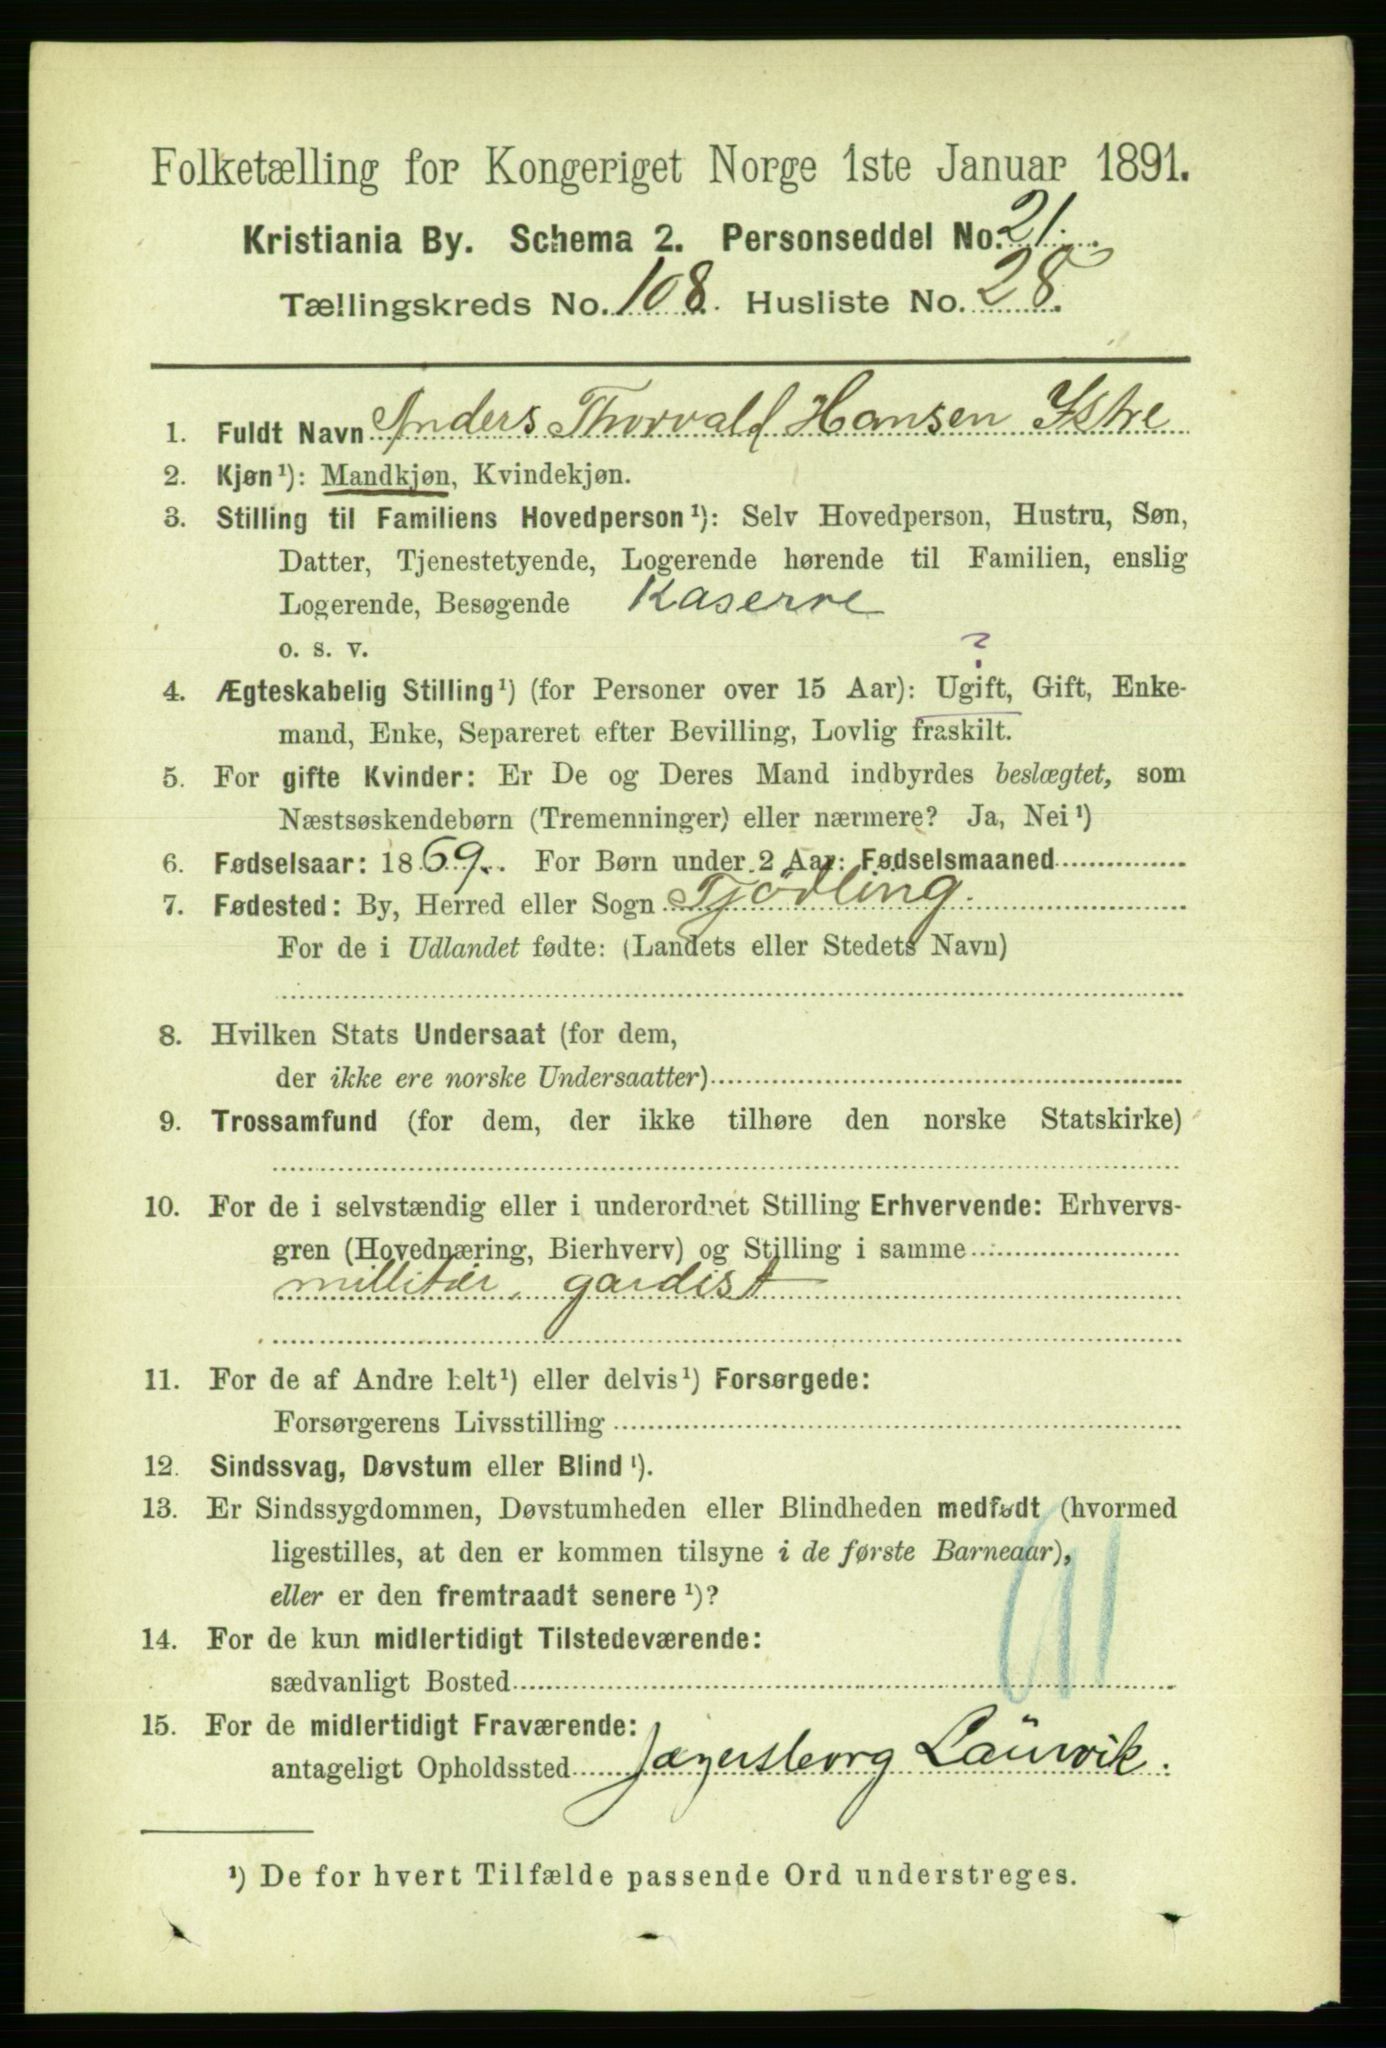 Folketælling for Kongeriget Norge 1ste Januar 1891.
Kristiania By. Schema 2. Personseddel No. 21.
Tællingskreds No. 108. Husliste No. 28.
1. Fuldt Navn Anders Thorvald Hansen Istre
2. Kjøn¹): Mandkjøn, Kvindekjøn.
3. Stilling til Familiens Hovedperson¹): Selv Hovedperson, Hustru, Søn,
Datter, Tjenestetyende, Logerende hørende til Familien, enslig
Logerende, Besøgende Kaserne
o. s. v.
?
4. Ægteskabelig Stilling¹) (for Personer over 15 Aar): Ugift, Gift, Enke-
mand, Enke, Separeret efter Bevilling, Lovlig fraskilt.
5. For gifte Kvinder: Er De og Deres Mand indbyrdes beslægtet, som
Næstsøskendebørn (Tremenninger) eller nærmere? Ja, Nei¹)
6. Fødselsaar: 1869. For Børn under 2 Aar: Fødselsmaaned
7. Fødested: By, Herred eller Sogn Tjödling.
For de i Udlandet fødte: (Landets eller Stedets Navn)
8. Hvilken Stats Undersaat (for dem,
der ikke ere norske Undersaatter)
9. Trossamfund (for dem, der ikke tilhøre den norske Statskirke)
10. For de i selvstændig eller i underordnet Stilling Erhvervende: Erhvervs-
gren (Hovednæring, Bierhverv) og Stilling i samme
millitær, gardist
11. For de af Andre helt¹) eller delvis¹) Forsørgede:
Forsørgerens Livsstilling
12. Sindssvag, Døvstum eller Blind¹).
13. Er Sindssygdommen, Døvstumheden eller Blindheden medfødt (hvormed
ligestilles, at den er kommen tilsyne i de første Barneaar),
eller er den fremtraadt senere¹)?
14. For de kun midlertidigt Tilstedeværende:
sædvanligt Bosted
15. For de midlertidigt Fraværende:
antageligt Opholdssted Jægersborg Laurvik.
¹) De for hvert Tilfælde passende Ord understreges.